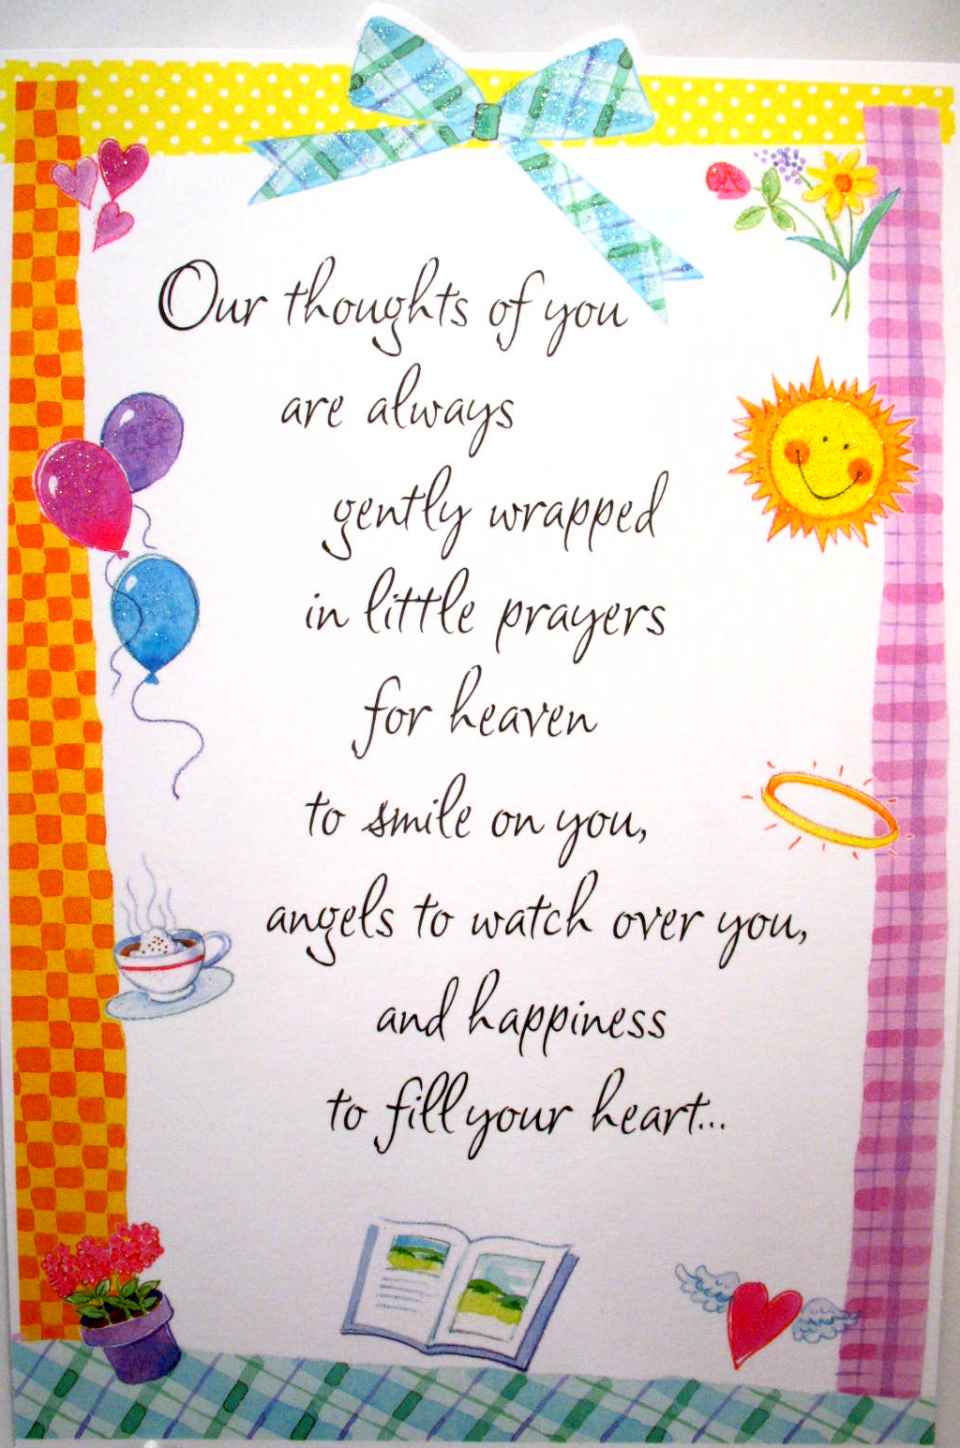 Our thoughts of you
are always
gently wrapped
in little prayers
for heaven
to smile on you,
angels to watch over you,
and happiness
to fill your heart...